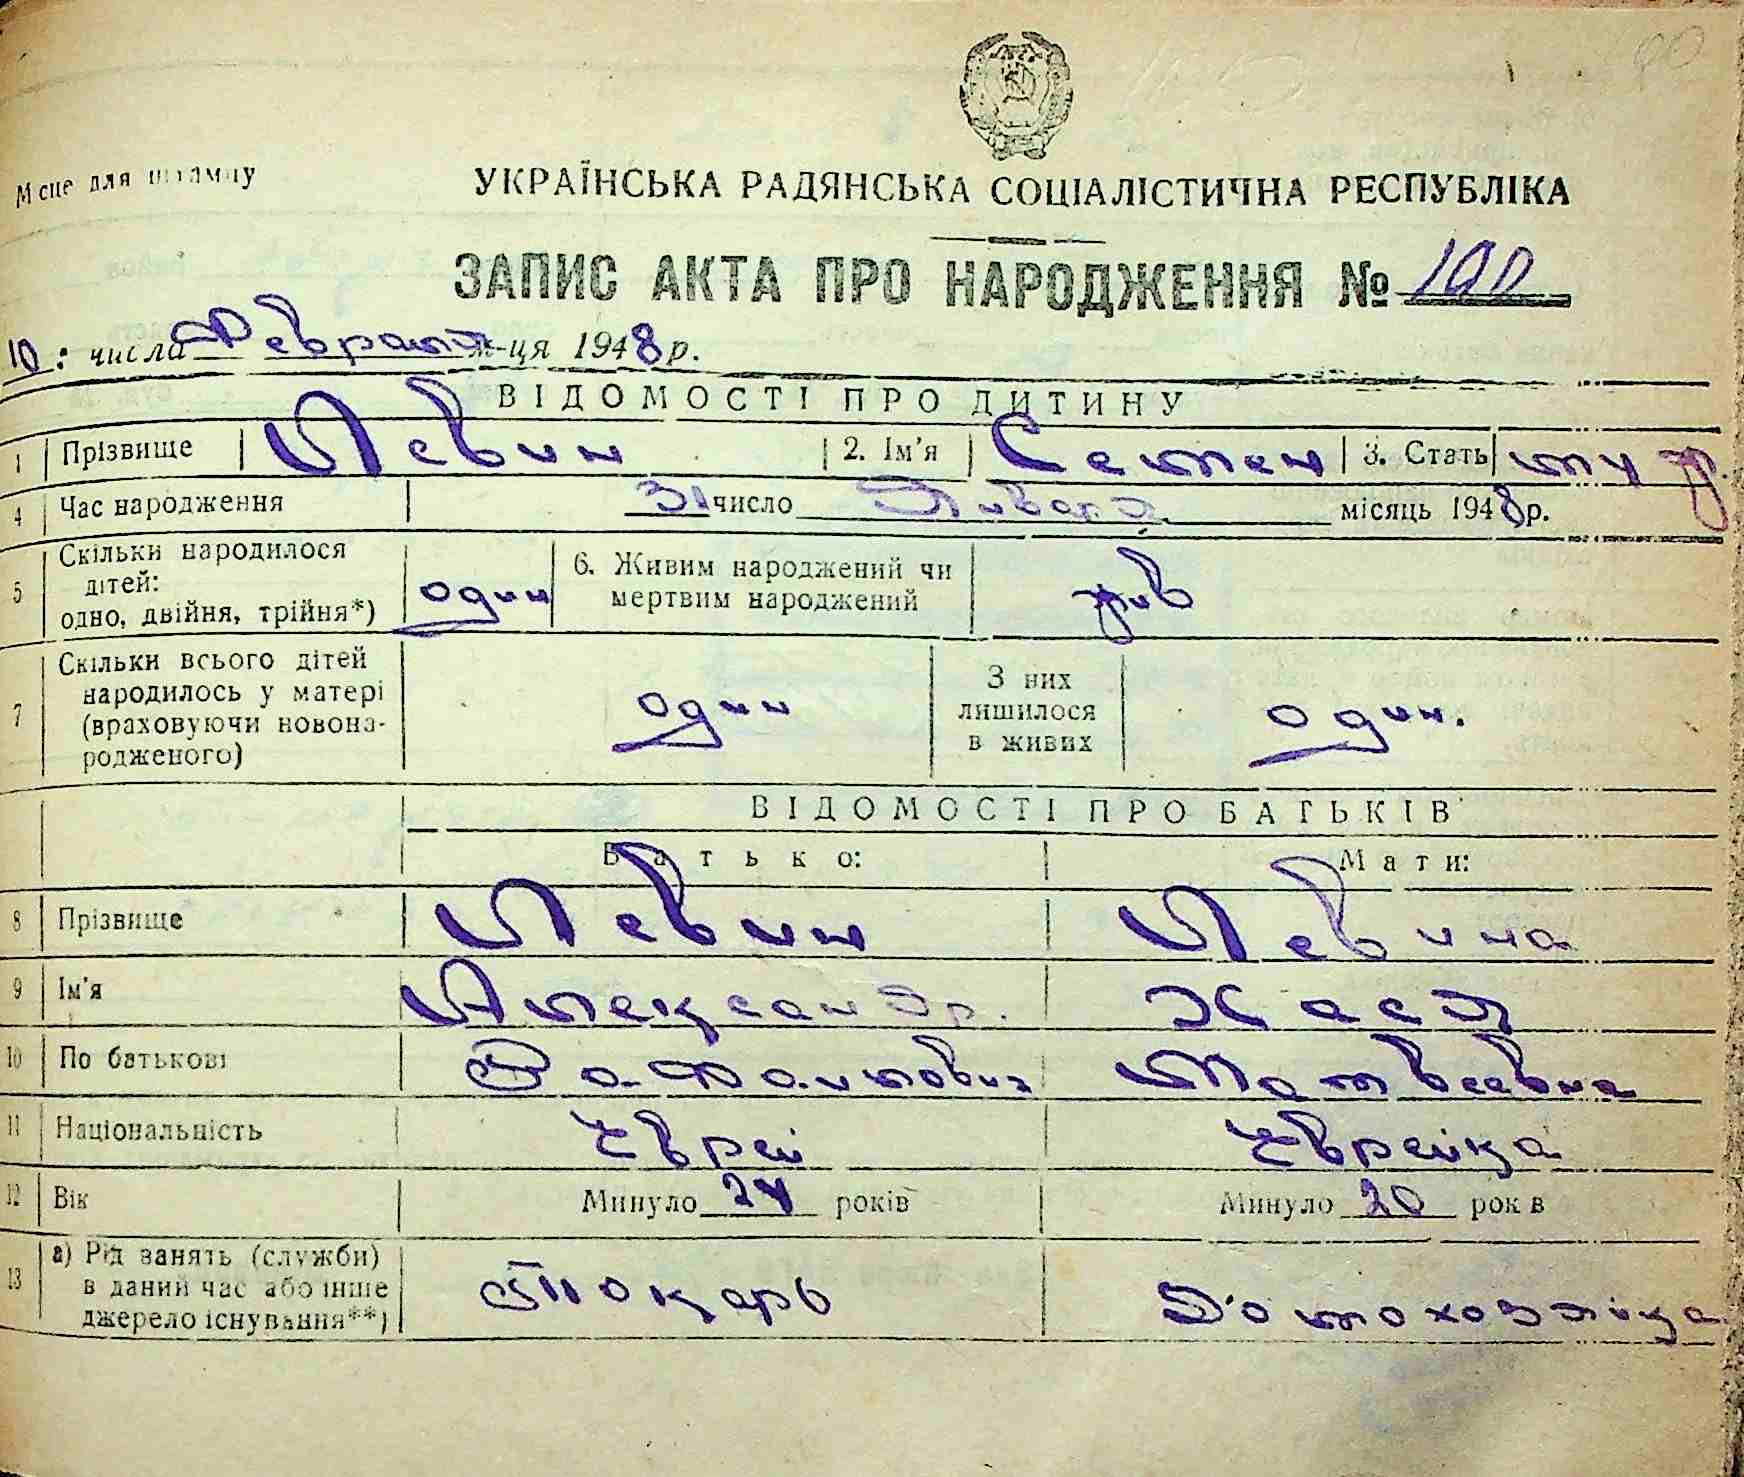 Місце для штампу
УКРАЇНСЬКА РАДЯНСЬКА СОЦІАЛІСТИЧНА РЕСПУБЛІКА
ЗАПИС АКТА ПРО НАРОДЖЕННЯ № 190
10: числа Февраля м-ця 1948 р.
ВІДОМОСТІ ПРО ДИТИНУ
1 Прізвище Левин 2. Ім'я Семен 3. Стать муж.
4 Час народження 31 число Января місяць 1948 р.
5 Скільки народилося дітей: одно, двійня, трійня*) один 6. Живим народжений чи мертвим народжений жив
7 Скільки всього дітей народилось у матері (враховуючи новонародженого) один З них лишилося в живих один.
ВІДОМОСТІ ПРО БАТЬКІВ
Батько: Мати:
8 Прізвище Левин Левина
9 Ім'я Александр. Хася
10 По батькові Матвеевна
11 Національність Еврей Еврейка
12 Вік Минуло 24 років Минуло 20 років
13 а) Рід занять (служби) в даний час або інше джерело існування**) Токарь Домохозяйка